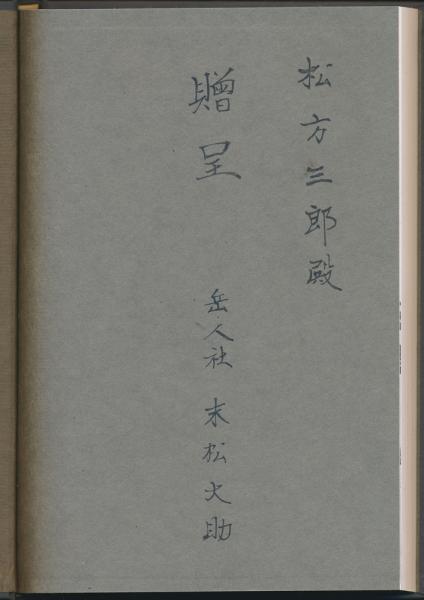 松方三郎殿
贈呈
岳人社 末松大助